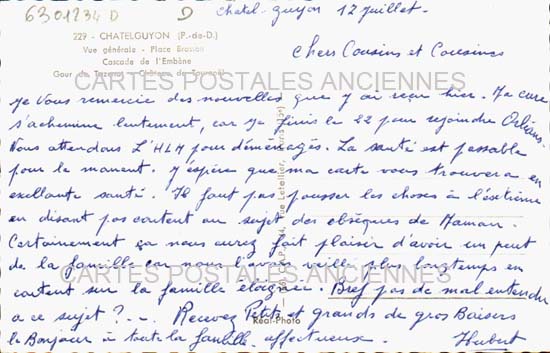 6301234 D
D
Chatel-guyon 12 juillet.
229 - CHATELGUYON (P.-de-D.)
Vue générale - Place Brosson
Cascade de l'Embène
Gour de Tazenat - Château de Tournoël
Chers Cousins et Cousines
CARTES POSTALES ANCIENNES
Je Vous remercie des nouvelles que j'ai reçu hier. Ma cure
s'achemine lentement, car je finis le 22 pour rejoindre Orléans.
Nous attendons L'HLM pour déménagés. La santé est passable
pour le moment. J'éspère que ma carte vous trouvera en
exellante santé. Il faut pas pousser les choses à l'extrème
en disant pas content au sujet des obsèques de Maman.
Certainement ça nous aurez fait plaisir d'avoir un peut
de la famille car nous l'avons veillé plus longtemps en
contant sur la famille éloignée. Bref pas de mal entendu
CARTES POSTALES ANCIENNES
a ce sujet ?.. Recevez Petits et grands de gros Baisers
Réal-Photo
le Bonjour à toute la famille. affectueux. Hubert